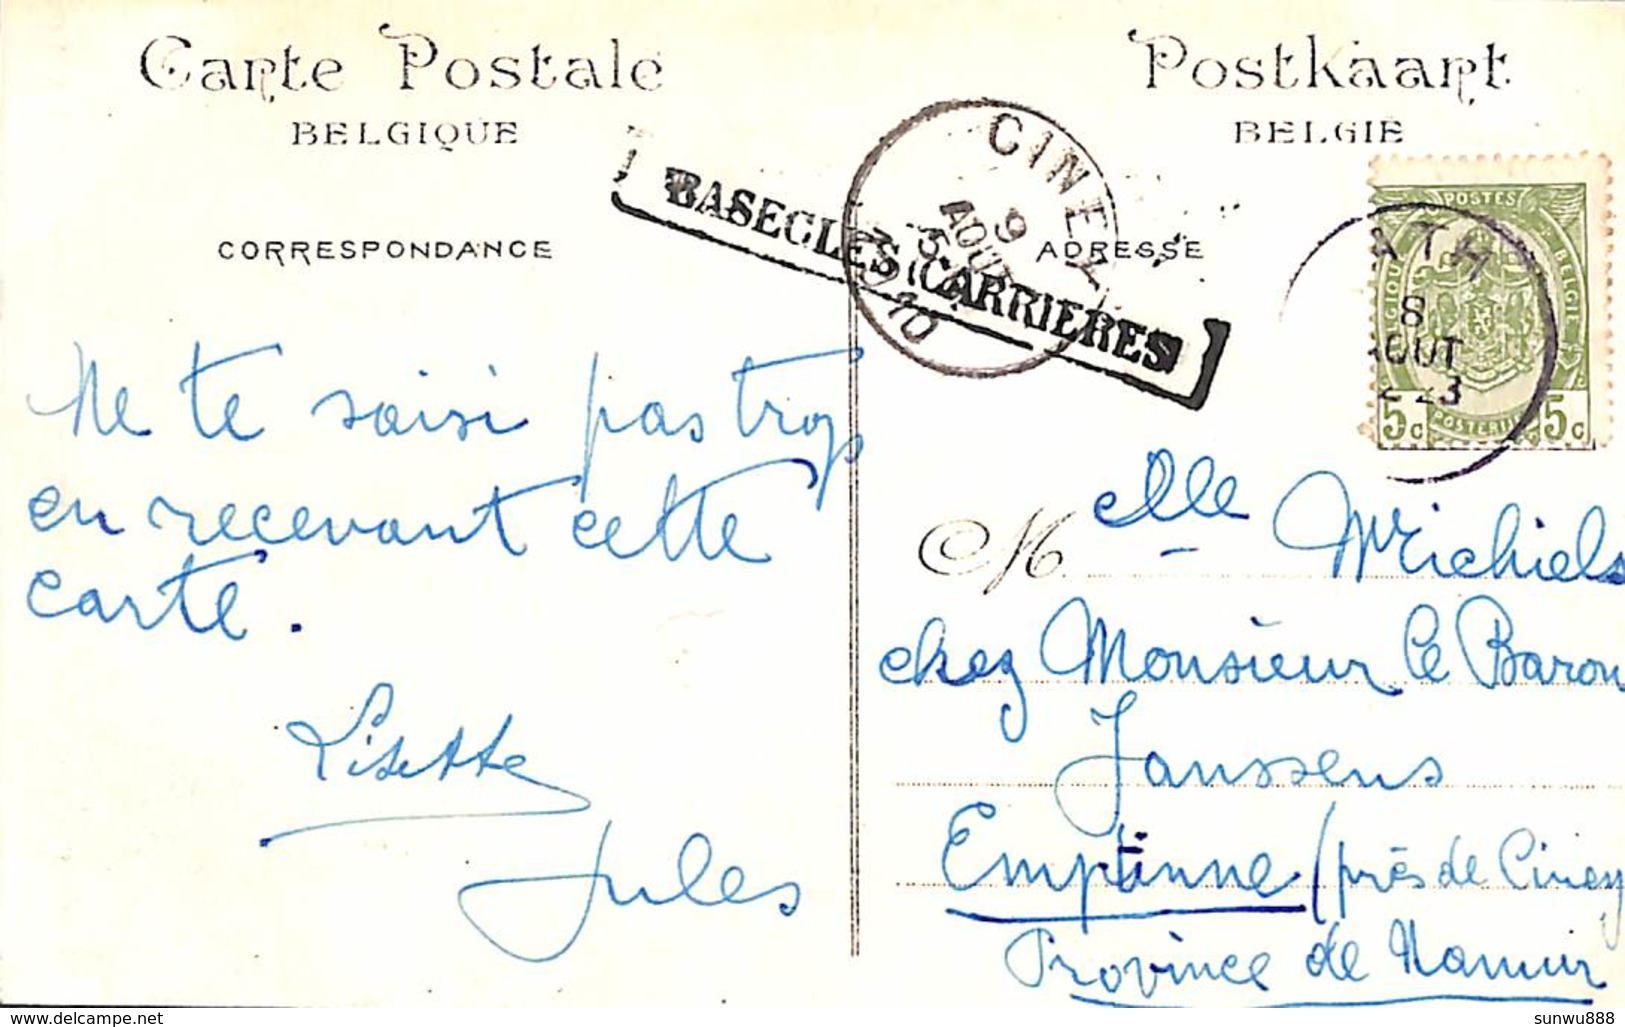 Carte Postale
BELGIQUE
CORRESPONDANCE
Postkaart
BELGIE
ADRESSE
BASECLES CARRIERES
CINEY
9
AOUT
5-
1910
ATH
8
AOUT
23
POSTES
BELGIQUE BELGIE
5c POSTERIJEN 5c
Ne te saisi pas trop
en recevant cette
carte.
Lisette
Jules
M elle Michiels
chez Monsieur le Baron
Janssens
Emptinne (près de Ciney
Province de Namur
delcampe.net
sunwu888